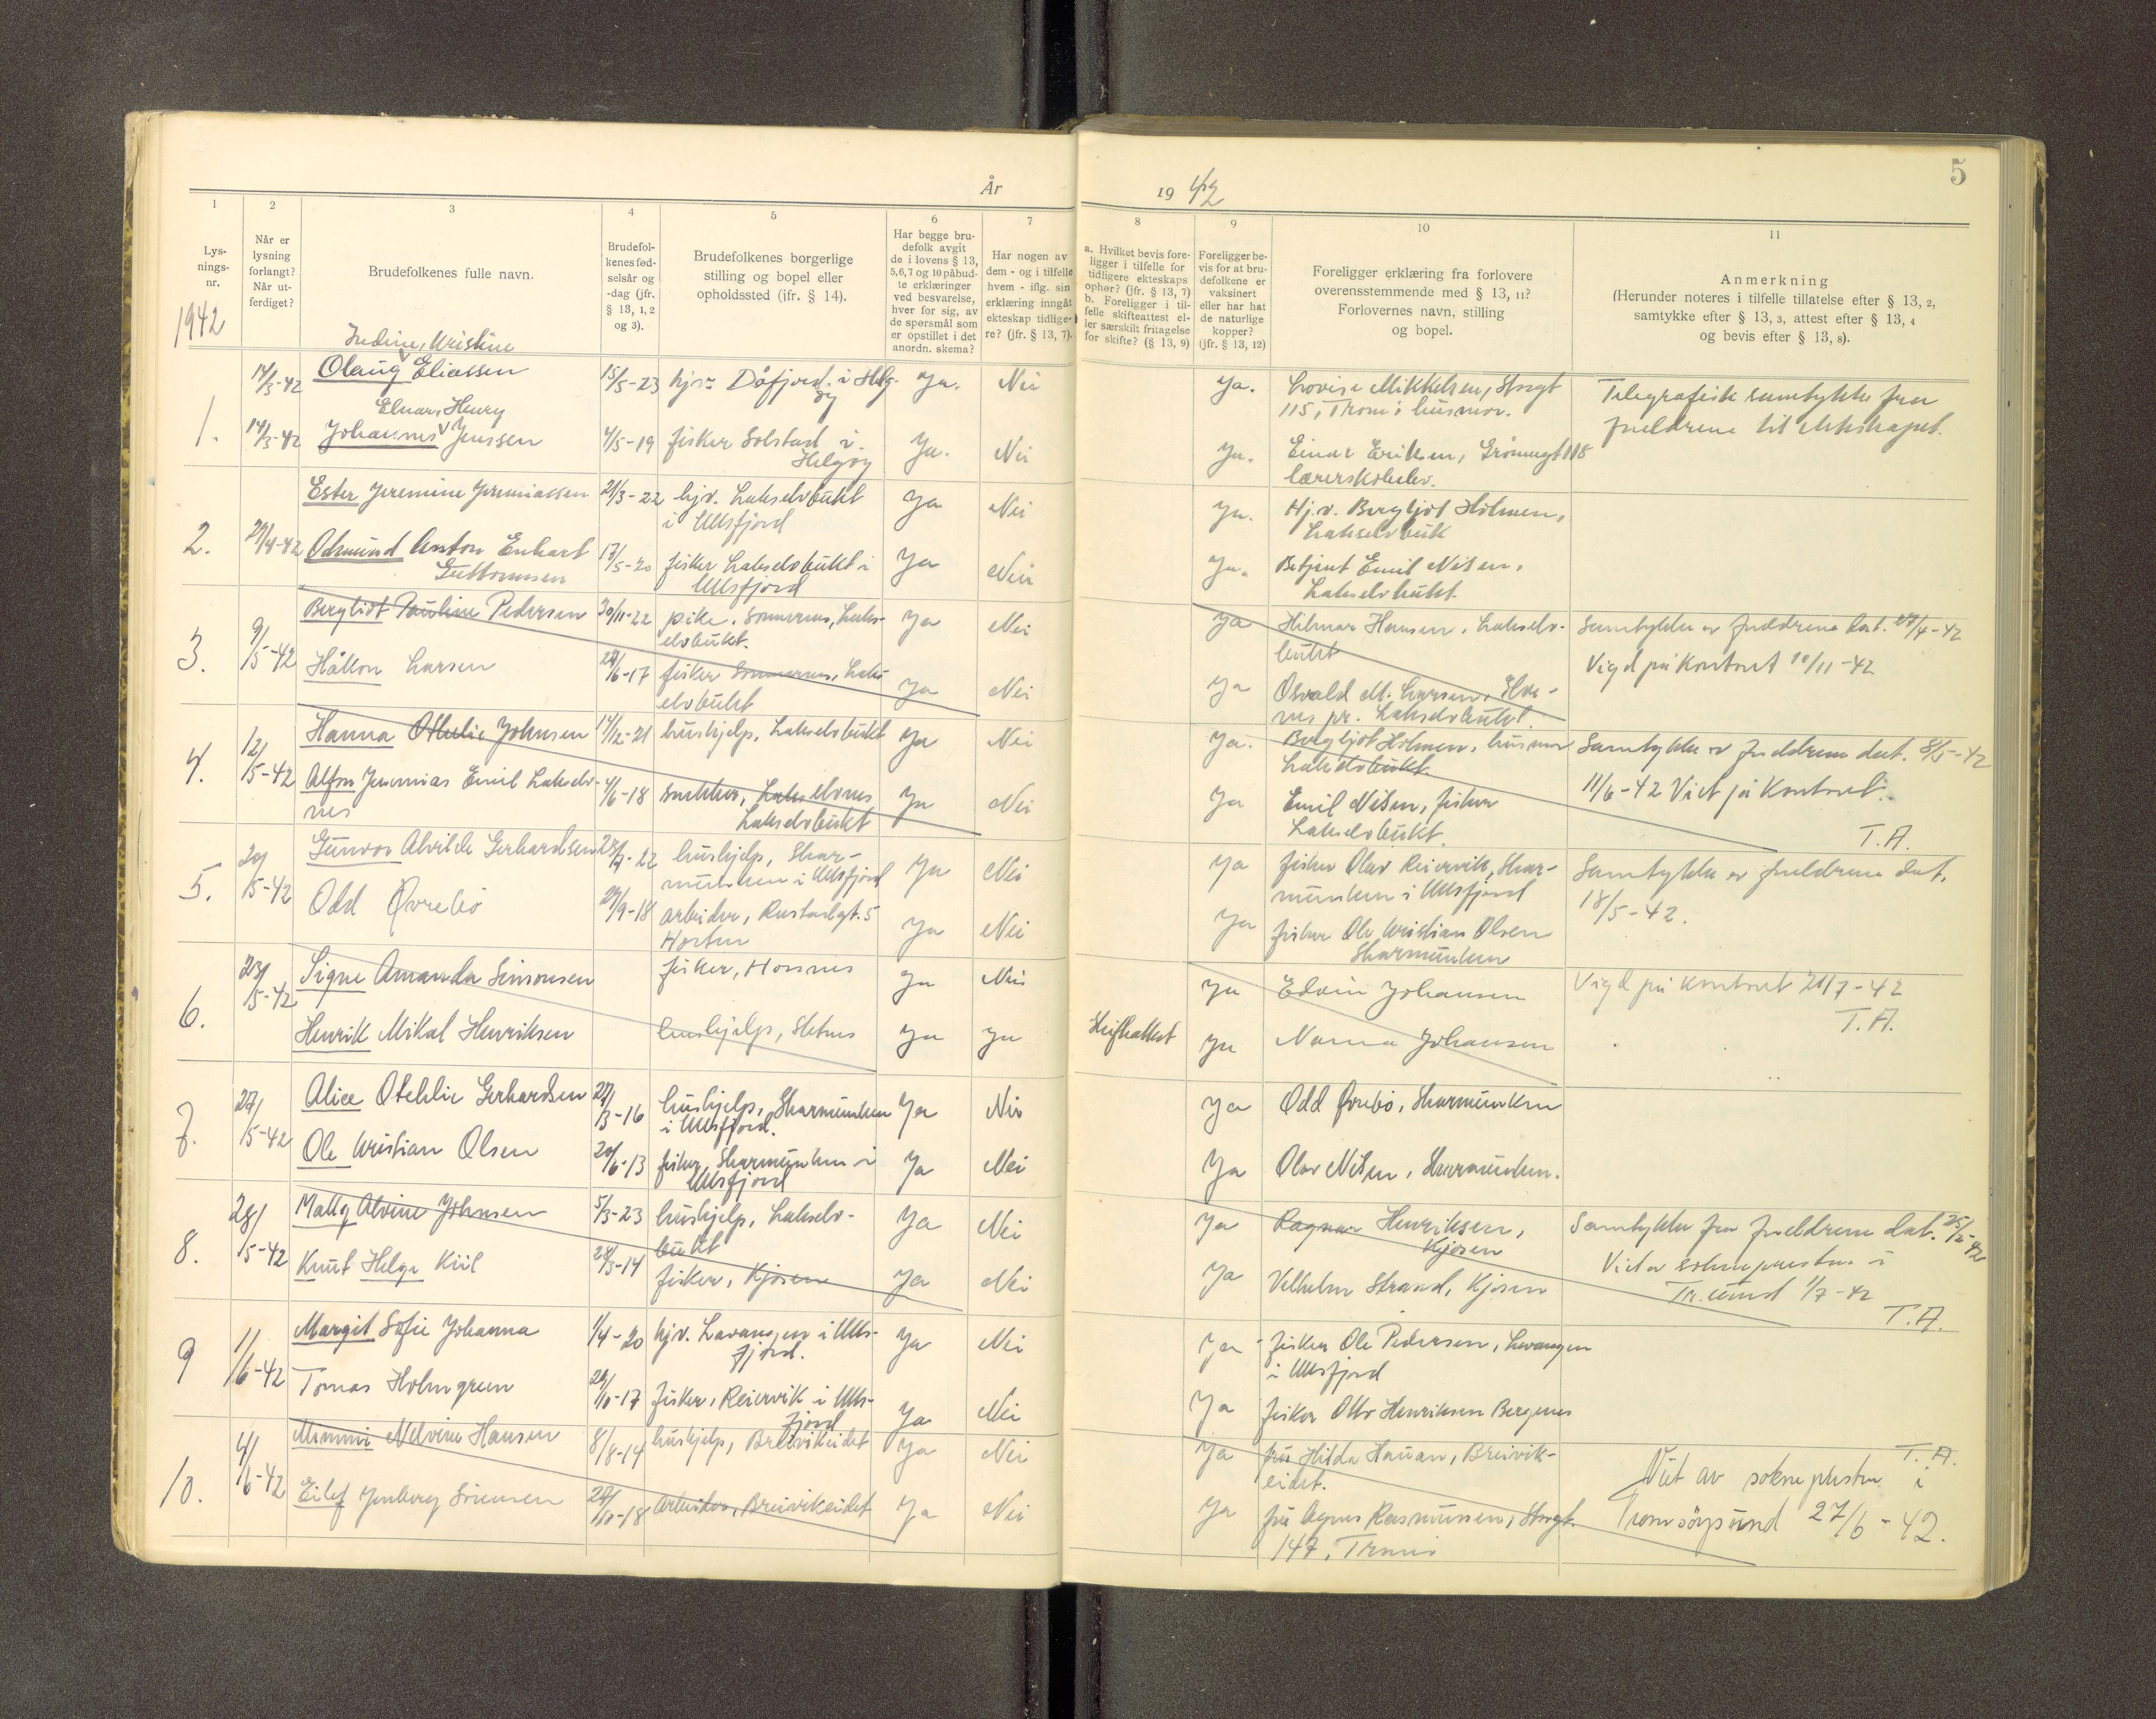 År 19 42
5
1 2 3 4 5 6 7 8 9 10 11
Lys-
nings-
nr.
1942
Når er
lysning
forlangt?
Når ut-
ferdiget?
Brudefolkenes fulle navn.
Brudefol-
kenes fød-
selsår og
-dag (jfr.
§ 13, 1, 2
og 3).
Brudefolkenes borgerlige
stilling og bopel eller
opholdssted (jfr. § 14).
Har begge bru-
defolk avgit
de i lovens § 13,
5,6,7 og 10 påbud-
te erklæringer
ved besvarelse,
hver for sig, av
de spørsmål som
er opstillet i det
anordn. skema?
Har nogen av
dem - og i tilfelle
hvem - iflg. sin
erklæring inngåt
ektes­kap tidlige-
re? (jfr. § 13, 7).
a. Hvilket bevis fore-
ligger i tilfelle for
tidligere ekteskaps
ophør? (jfr. § 13, 7)
b. Foreligger i til-
felle skifteattest el-
ler særskilt fritagelse
for skifte? (§ 13, 9)
Foreligger be-
vis for at bru-
defolkene er
vaksinert
eller har hat
de naturlige
kopper?
(jfr. § 13, 12)
Foreligger erklæring fra forlovere
overensstemmende med § 13, 11?
Forlovernes navn, stilling
og bopel.
Anmerkning
(Herunder noteres i tilfelle tillatelse efter § 13, 2,
samtykke efter § 13, 3, attest efter § 13, 4
og bevis efter § 13, 8).
Kristine
14/3-42 Olaug Eliassen 15/5-23 Dåfjord i Helg- Ja. Nei Ja. Lovise Mikkelsen, Storgt Telegrafisk samtykke fra
øy 115, Troms husmor. foreldrene til ekteskapet.
Henry
1. 14/3-42 Johannes Jenssen 4/5-19 fisker Solstad i Ja. Nei Ja. Einar Eriksen, Grønnegt 118
Helgøy lærerskoleelev.
Ester Jeremine Jeremiassen 21/3-22 hjv. Lakselvbukt Ja Nei Ja. Hj.v. Bergljot Holmen,
i Ullsfjord Lakselvbukt
2. 29/4-42 Odmund Anton Enhart 17/5-20 fisker Lakselvbukt i Ja Nei Ja. Betjent Emil Nilsen,
Guttormsen Ullsfjord Lakselvbukt.
Bergliot Pauline Pedersen 30/11-22 pike, Sommernes, Laks- Ja Nei Ja Hilmar Hansen, Lakselv- Samtykke av foreldrene dat. 27/4-42
elvbukt. bukt
3. 9/5-42 Håkon Larsen 27/6-17 fisker Sommernes, Laks- Ja Nei Ja Osvald M. Larsen, Vigd på kontoret 10/11-42
elvbukt nes pr. Lakselvbukt.
Hanna Othelie Johnsen 14/12-21 hushjelp, Lakselvbukt Ja Nei Ja. Bergljot Holmen, husmor Samtykke av foreldrene dat. 8/5-42
Lakselvbukt.
4. 12/5-42 Alfon Jeremias Emil Lakselv- 4/6-18 snekker, Lakselvnes Ja Nei Ja Emil Nilsen, fisker 11/6-42 Viet på kontoret.
nes Lakselvbukt Lakselvbukt. T.A.
Gunvor Alvilde Gerhardsen 23/7-22 hushjelp, Skar- Ja Nei Ja fisker Olav Reiervik, Skar- Samtykke av foreldrene dat.
munken i Ullsfjord munken i Ullsfjord 18/5-42.
5. 20/5-42 Odd Øvrebø 29/9-18 arbeider, Rustadgt. 5 Ja Nei Ja fisker Ole Kristian Olsen
Horten Skarmunken
23/5-42 Signe Amanda Simonsen fisker, Ja Nei Ja Edvin Johansen Vigd på kontoret 21/7-42
T.A.
6. Henrik Mikal Henriksen hushjelp, Ja Ja Skifteattest Ja Nanna Johansen
Alice Otehlie Gerhardsen 27/3-16 hushjelp, Skarmunken Ja Nei Ja Odd Øvrebø, Skarmunken
i Ullsfjord.
7. 27/5-42 Ole Kristian Olsen 20/6-13 fisker, Skarmunken i Ja Nei Ja Olav Nilsen, Skarmunken.
Ullsfjord
Malig Alvine Johnsen 5/3-23 hushjelp, Lakselv- Ja Nei Ja Ragnar Henriksen, Samtykke fra foreldrene dat. 25/5-42
bukt Kjosen
8. 28/5-42 Knut Helge Kiil 28/3-14 fisker, Kjosen Ja Nei Ja Vilhelm Strand, Kjosen Viet av soknepresten i
Tr.sund 1/7-42
T.A.
Margit Sofie Johanna 1/4-20 hjv. Lavangen i Ulls- Ja Nei Ja fisker Ole Pedersen, Lavangen
fjord. i Ullsfjord
9 11/6-42 Tomas Holmgren 29/10-17 fisker, Reiervik i Ulls- Ja Nei Ja fisker Otto Henriksen Bergenes
fjord
Mimmi Nelvine Hansen 8/8-14 hushjelp, Breivikeidet Ja Nei Ja fru Hilda Hauan, Breivik- T.A.
eidet. Viet av soknepresten i
10. 4/6-42 Eilef Jenberg Sørensen 27/10-18 Arbeider, Breivikeidet Ja Nei Ja fru Agnes Rasmussen, Storgt. Tromsøysund 27/6-42.
147, Tromsø